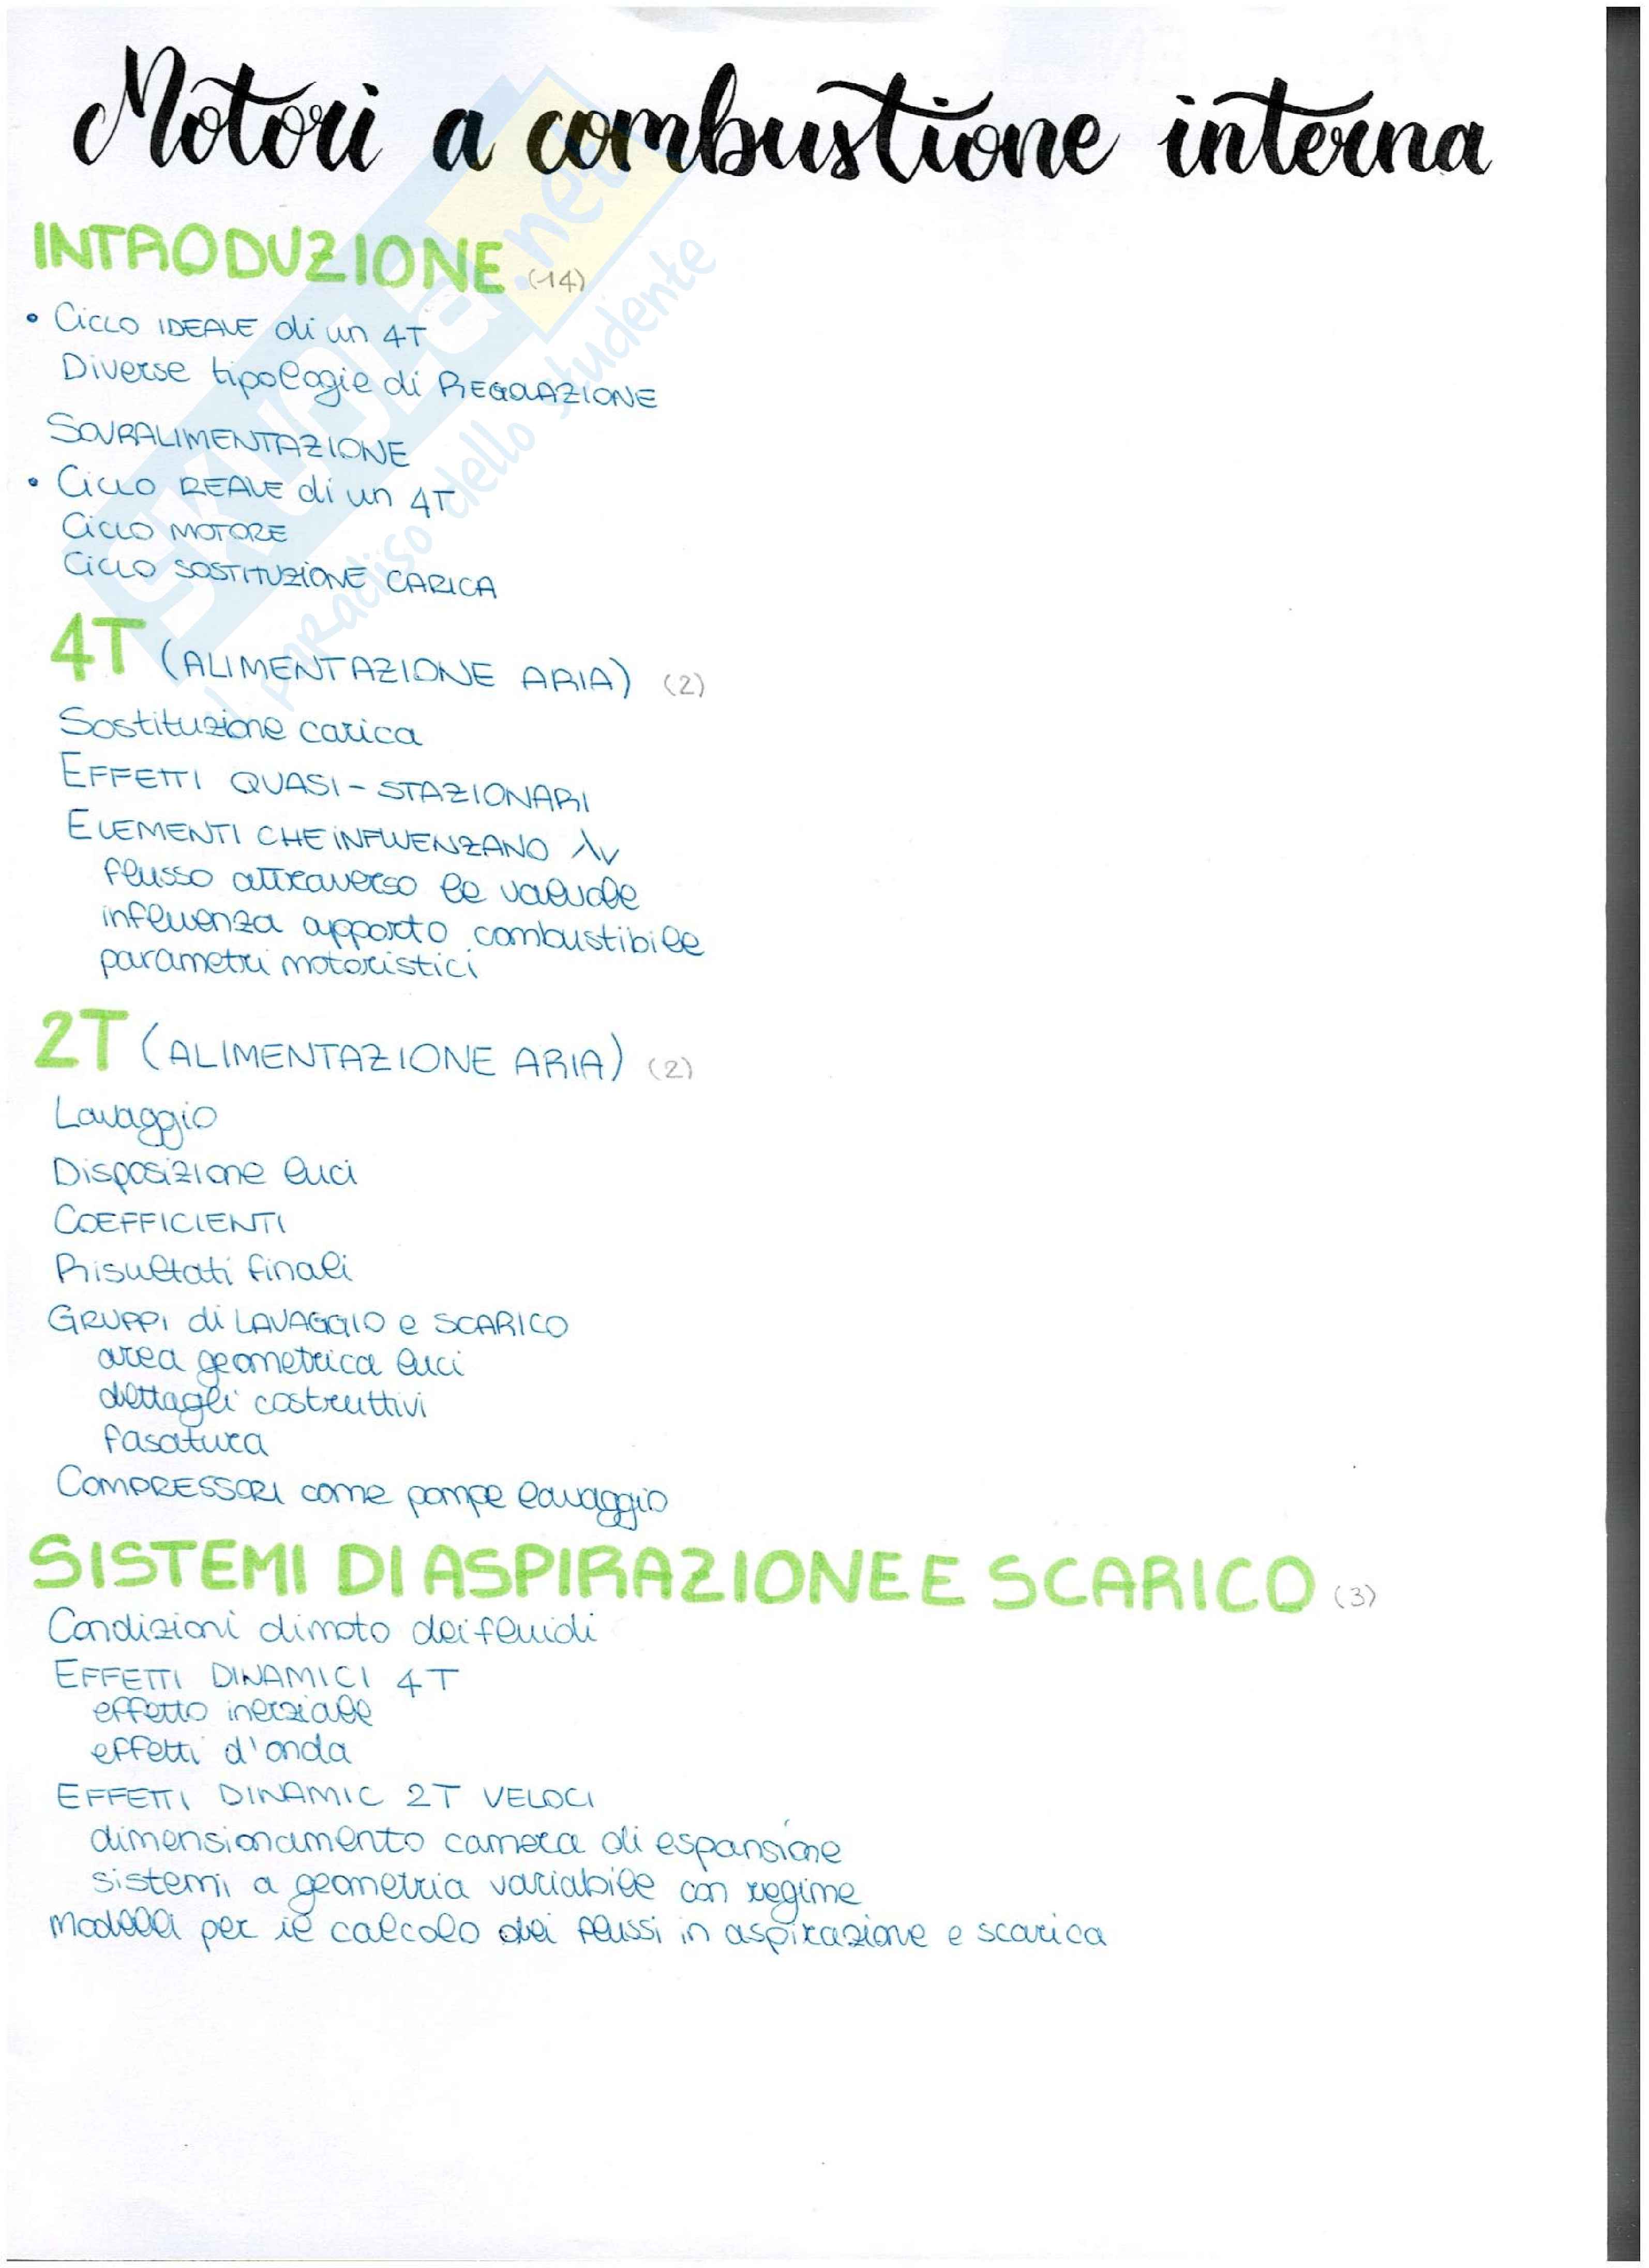 Motori a combustione interna
INTRODUZIONE (14)
• Ciclo IDEALE di un 4T
Diverse tipologie di REGOLAZIONE
SOVRALIMENTAZIONE
• Ciclo REALE di un 4T
Ciclo MOTORE
Ciclo SOSTITUZIONE CARICA
4T (ALIMENTAZIONE ARIA) (2)
Sostituzione carica
EFFETTI QUASI-STAZIONARI
ELEMENTI CHE INFLUENZANO λv
flusso attraverso le valvole
influenza apporto combustibile
parametri motoristici
2T (ALIMENTAZIONE ARIA) (2)
Lavaggio
Disposizione luci
COEFFICIENTI
Risultati finali
GRUPPI di LAVAGGIO e SCARICO
area geometrica luci
dettagli costruttivi
fasatura
COMPRESSORI come pompe lavaggio
SISTEMI DI ASPIRAZIONE E SCARICO (3)
Condizioni di moto dei fluidi
EFFETTI DINAMICI 4T
effetto inerziale
effetti d'onda
EFFETTI DINAMIC 2T VELOCI
dimensionamento camera di espansione
sistemi a geometria variabile con regime
modelli per il calcolo dei flussi in aspirazione e scarica
SKUOLA.net
il paradiso dello studente